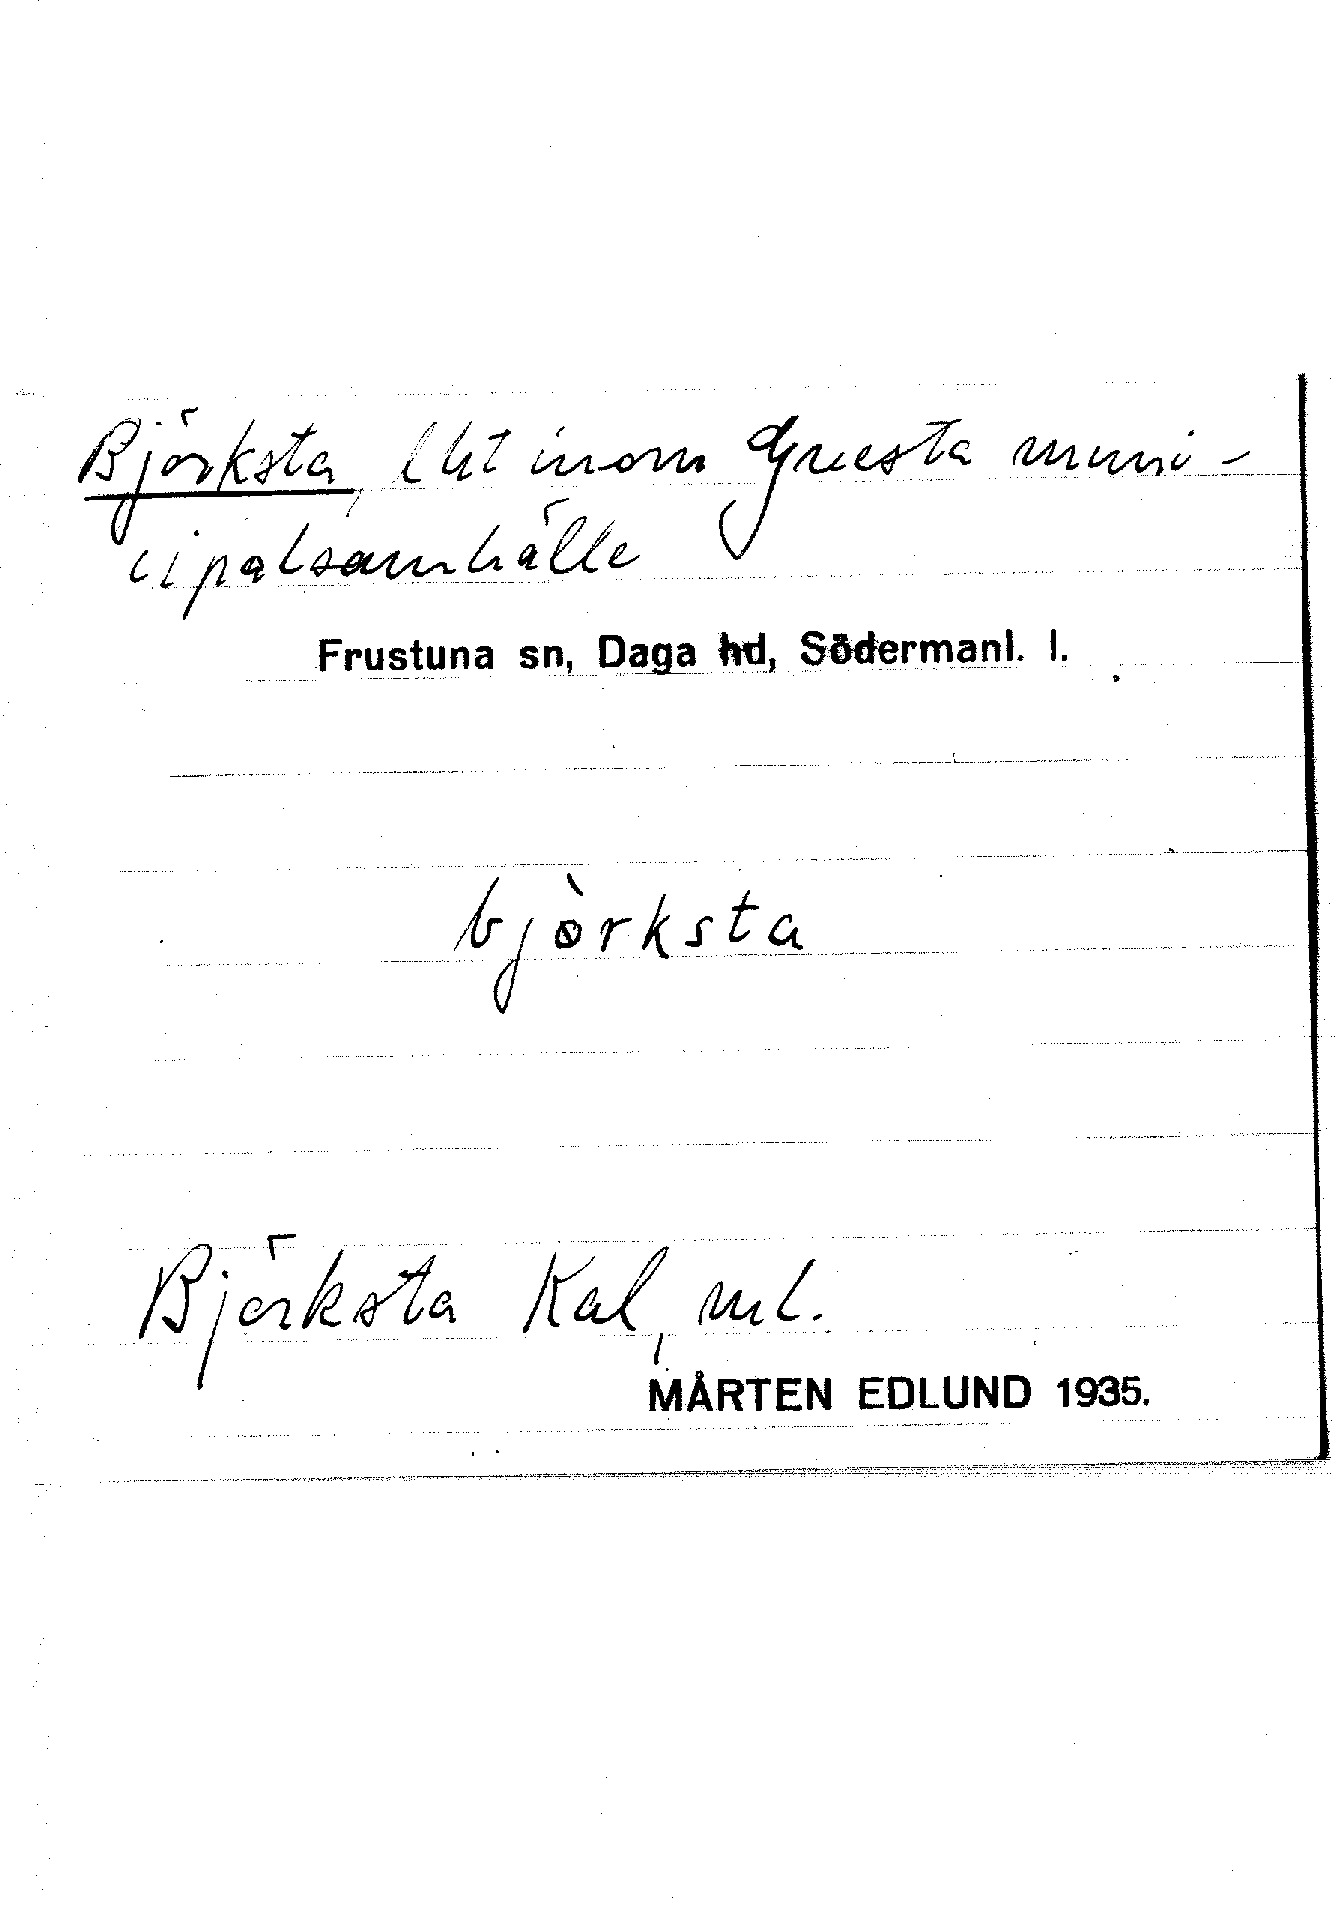 Björksta, lht inom Gnesta muni-
cipalsamhälle
Frustuna sn, Daga hd, Södermanl. l.
bjørksta
Björksta Kal, ml.
MÅRTEN EDLUND 1935.